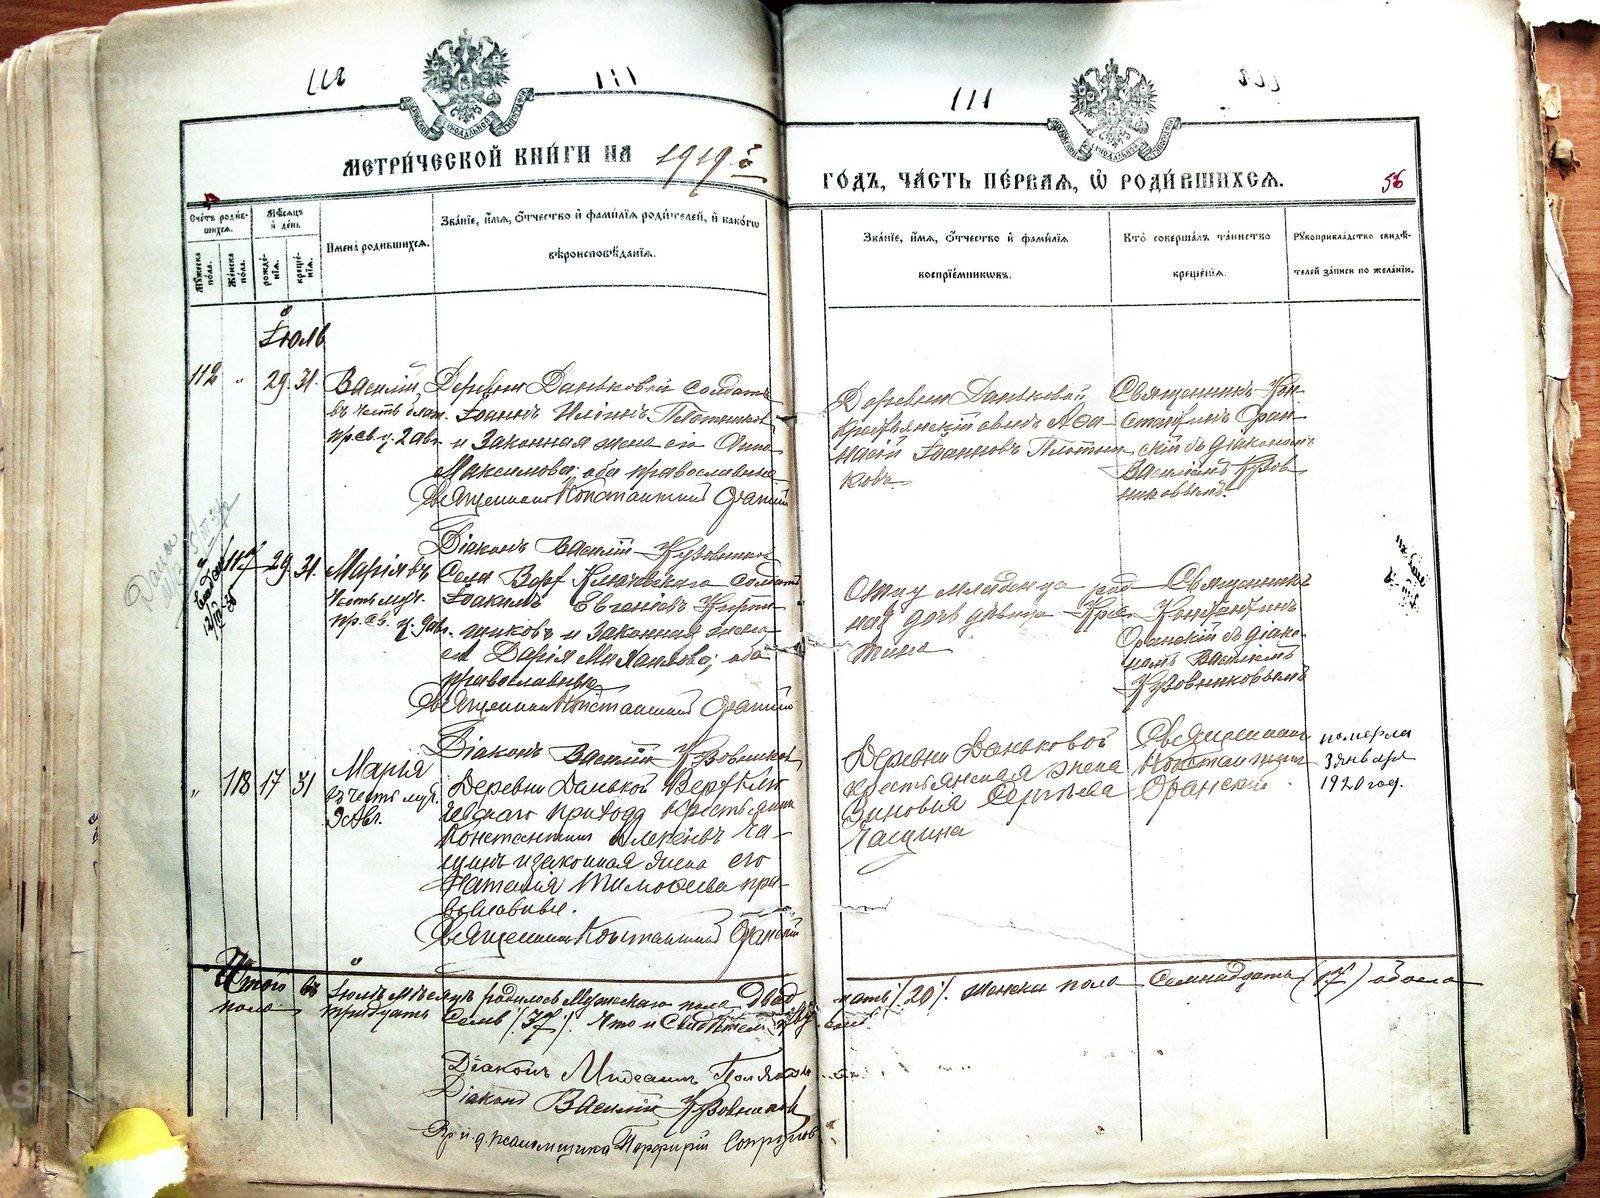 111
111
МЕТРИ́ЧЕСКОЙ КНИ́ГИ НА 1919 г.
ГО́ДЪ, ЧА́СТЬ ПЕ́РВАЯ, Ѡ РОДИ́ВШИХСЯ.
56
Сче́тъ роди́в-
шихся.
Мѹ́жеска по́ла.
Же́нска по́ла.
Мѣ́сяцъ
и҆ де́нь.
рожде́-
нія.
креще́-
нія.
И҆мена̀ роди́вшихся.
Зва́ніе, и҆́мя, ѻ҆́тчество и҆ фами́лїя роди́телей, и҆ како́гѡ
вѣроисповѣ́данія.
Зва́ніе, и҆́мя, ѻ҆́тчество и҆ фами́лїя
воспрїе́мниковъ.
Кто̀ соверша́лъ та́инство
креще́нїя.
Рѹкоприкла́дство свидѣ́-
телей за́писи по жела́нїю.
Іюль
112 29. 31. Василій,
въ честь
пр. св. ц. 2 авг.
Деревни Даньковой солдатъ
Іоаннъ Иліинъ Плотников
и законная жена его Анна
Максимова; оба православные
Священникъ Константинъ Оранскій
Діаконъ Василій Кузовников
Деревни Даньковой
крестьянскій сынъ Аѳа-
насій Іоанновъ Плотни-
ковъ
Священникъ Кон-
стантинъ Оран-
скій съ діакономъ
Василіемъ Кузов-
никовымъ.
117 29. 31. Марія въ
честь муч.
пр. св. ц. 9 авг.
Села Верх Ключевского солдатъ
Іоакимъ Евгеніевъ
и законная жена
его Дарія Михаилова; оба
православные
Священникъ Константинъ Оранскій
Діаконъ Василій Кузовников
Отцу младенца род-
ная дочь дѣвица Хрис-
тина
Священникъ
Константинъ
Оранскій съ діако-
номъ Василіемъ
Кузовниковымъ
118 17 31 Марія
въ честь муч.
9 Авг.
Деревни Даньковой Верх Клю-
чевского прихода крестьянинъ
Константинъ Алексѣевъ Ча-
щинъ и законная жена его
Наталія Тимоѳеева пра-
вославные.
Священникъ Константинъ Оранскій
Деревни Даньковой
крестьянская жена
Зиновія Сергѣева
Чащина
Священникъ
Константинъ
Оранскій.
померла
3 января
1920 год.
Итого въ Іюлѣ мѣсяцѣ родилось Мужескаго пола двад цать /20/ женска пола семнадцать (17) обоего
пола тридцать семь /37/. Что и свидѣтельствуемъ.
Діаконъ Поляков
Діаконъ Василій Кузовников
И. д. псаломщика Порфирій